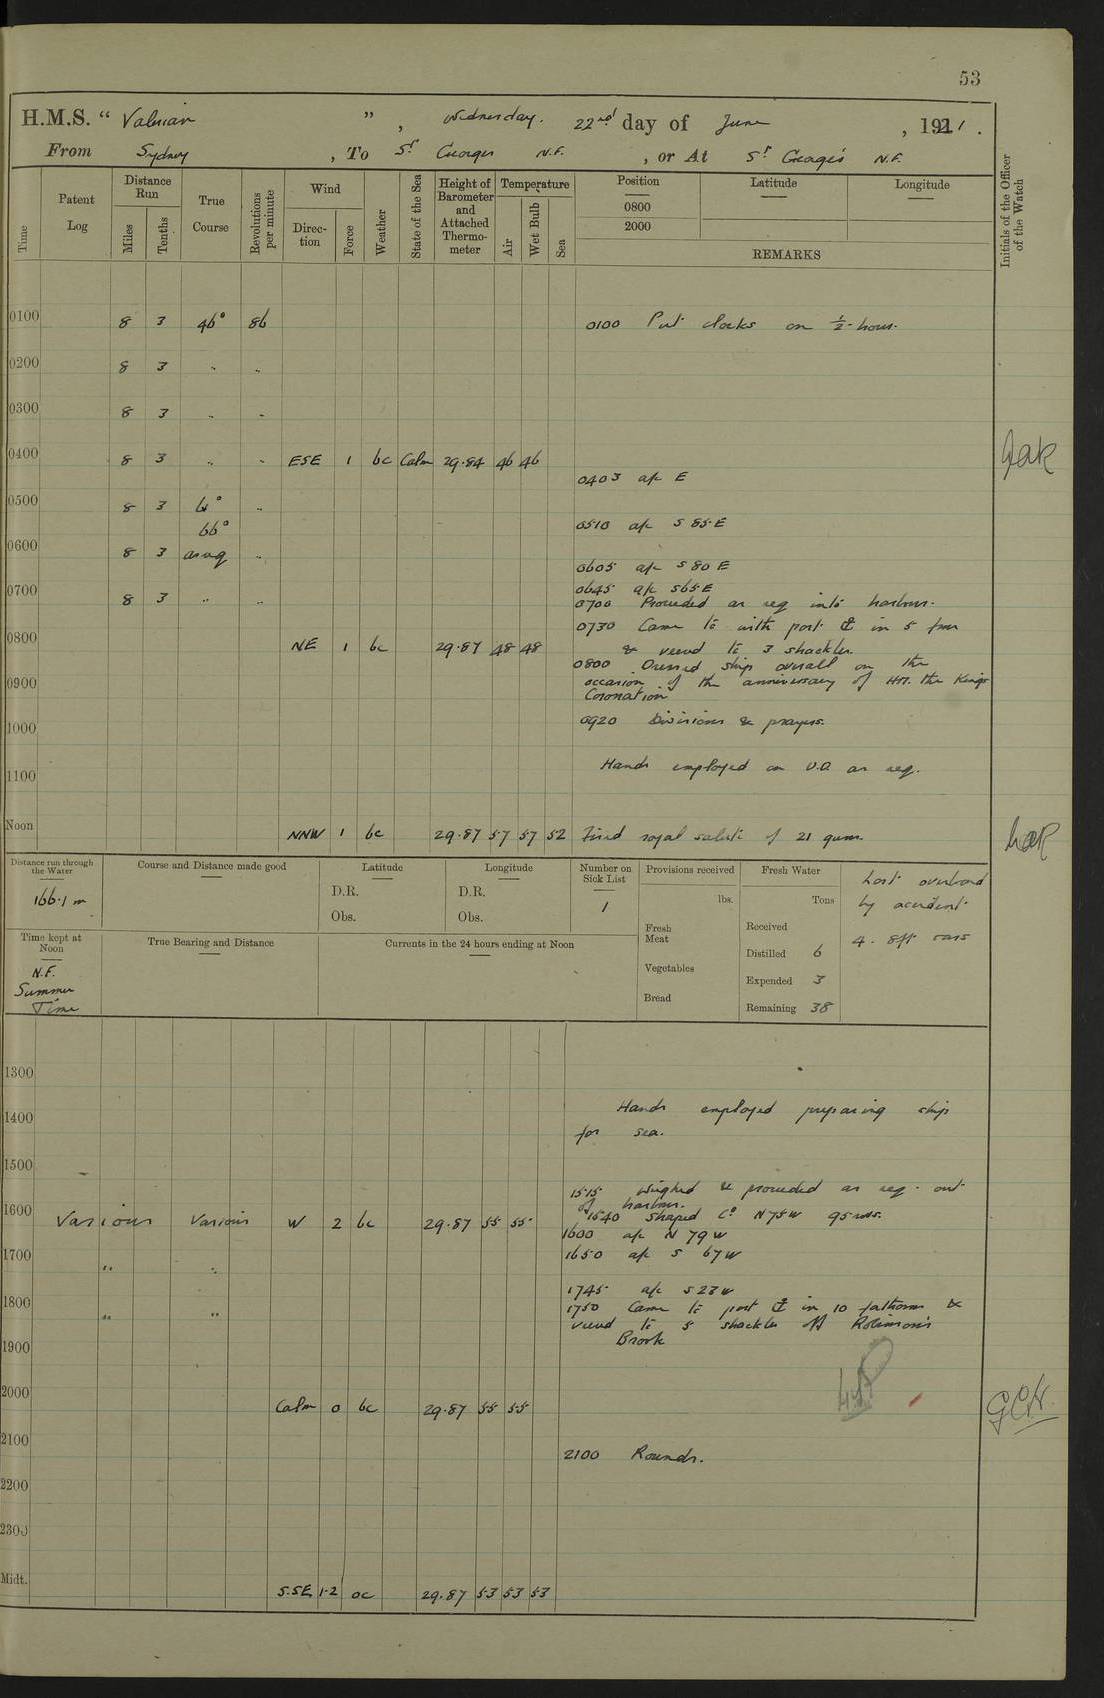 53
H.M.S. " Valerian ", Wednesday. 22nd day of June, 1921.
From Sydney, To St Georges N.F., or At St George's N.F.
Time
Patent Log
Distance Run
Miles
Tenths
True Course
Revolutions per minute
Wind
Direction
Force
Weather
State of the Sea
Height of Barometer and Attached Thermometer
Temperature
Air
Wet Bulb
Sea
Position
0800
2000
Latitude
Longitude
REMARKS
Initials of the Officer of the Watch
0100 8 3 46° 86 0100 Put clocks on ½ hour.
0200 8 3 " "
0300 8 3 " "
0400 8 3 " " ESE 1 bc Calm 29.84 46 46
0403 a/c E
0500 8 3 "
66° 0510 a/c S 85 E
0600 8 3 as req "
0605 a/c S 80 E
0645 a/c S 65 E
0700 8 3 " " 0700 Proceeded as req into harbour.
0730 Came to with port ⚓ in 5 fms
& veered to 3 shackles.
0800 NE 1 bc 29.87 48 48
0800 Dressed ship overall on the
0900 occasion of the anniversary of HM. the Kings
Coronation
0920 Divisions & prayers.
1000
Hands employed on U.D as req.
1100
Noon NNW 1 bc 29.87 57 57 52 Fired royal salute of 21 guns.
Distance run through the Water
166.1 m
Course and Distance made good
Latitude
D.R.
Obs.
Longitude
D.R.
Obs.
Number on Sick List
1
Provisions received
lbs.
Fresh Meat
Vegetables
Bread
Fresh Water
Tons
Received
Distilled 6
Expended 3
Remaining 38
Lost overboard
by accident
4. 8ft oars
Time kept at Noon
N.F.
Summer
Time
True Bearing and Distance
Currents in the 24 hours ending at Noon
1300
1400 Hands employed preparing ship
for sea.
1500
1515 Weighed & proceeded as req. out
of harbour.
1540 Shaped Co N75W 95 revs.
1600 Various Various W 2 bc 29.87 55 55
1600 a/c N 79 W
1650 a/c S 67 W
1700 " "
1745 a/c S 23 W
1800 " " 1750 Came to port ⚓ in 10 fathoms &
veered to 5 shackles off Robinson's
Brook
1900
2000 Calm 0 bc 29.87 55 55
GCH
2100
2100 Rounds.
2200
2300
Midt. S.SE 1-2 oc 29.87 53 53 53